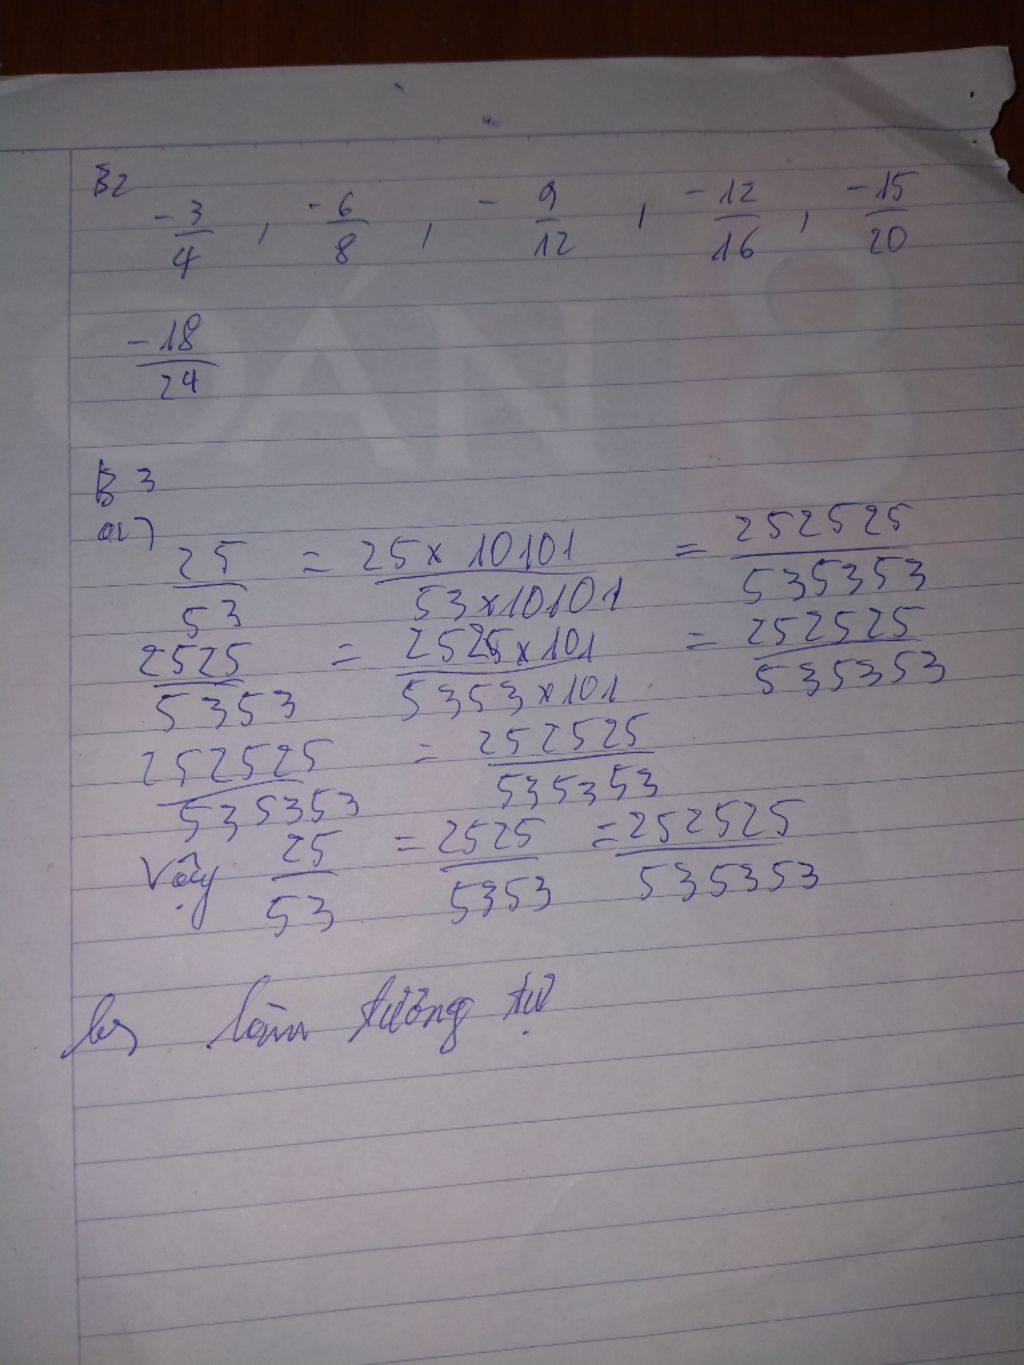 B2
-3/4 , -6/8 , -9/12 , -12/16 , -15/20
-18/24
B3
a)
25/53 = 25 × 10101/53 × 10101 = 252525/535353
2525/5353 = 2525 × 101/5353 × 101 = 252525/535353
252525/535353 = 252525/535353
Vậy 25/53 = 2525/5353 = 252525/535353
b) làm tương tự
OÁN 8